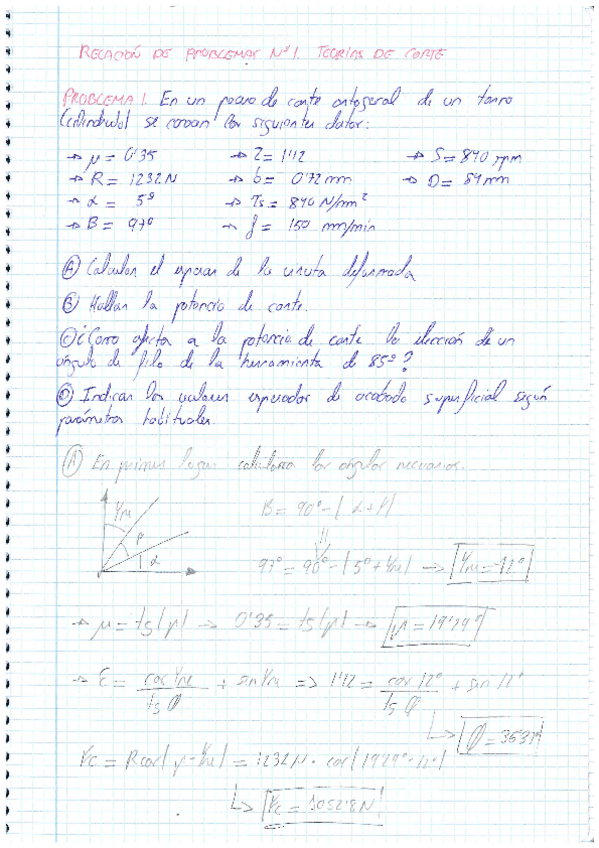 RELACIÓN DE PROBLEMAS Nº1. TEORÍAS DE CORTE
PROBLEMA 1. En un proceso de corte ortogonal de un torno
(cilindrado) se conocen los siguientes datos:
→ μ = 0'35 → ζ = 1'12 → S = 840 rpm
→ R = 1232 N → b = 0'72 mm → D = 84 mm
→ α = 5º → τs = 840 N/mm²
→ B = 97º → f = 150 mm/min
Ⓐ Calcular el espesor de la viruta deformada
Ⓑ Hallar la potencia de corte.
Ⓒ ¿Cómo afecta a la potencia de corte la elección de un
ángulo de filo de la herramienta de 85º?
Ⓓ Indicar los valores esperados de acabado superficial según
parámetros habituales.
Ⓐ En primer lugar calculamos los ángulos necesarios.
γne
ρ
α
B = 90º - (α +
97º = 90º - (5º + γne) → γne = -12º
→ μ = tg(ρ) → 0'35 = tg(ρ) → ρ = 19'29º
→ ξ = cos γne / tg φ + sin γne => 1'12 = cos 12º / tg φ + sin 12º
Fc = R cos(ρ - γne) = 1232 N · cos(19'29º - 12º)